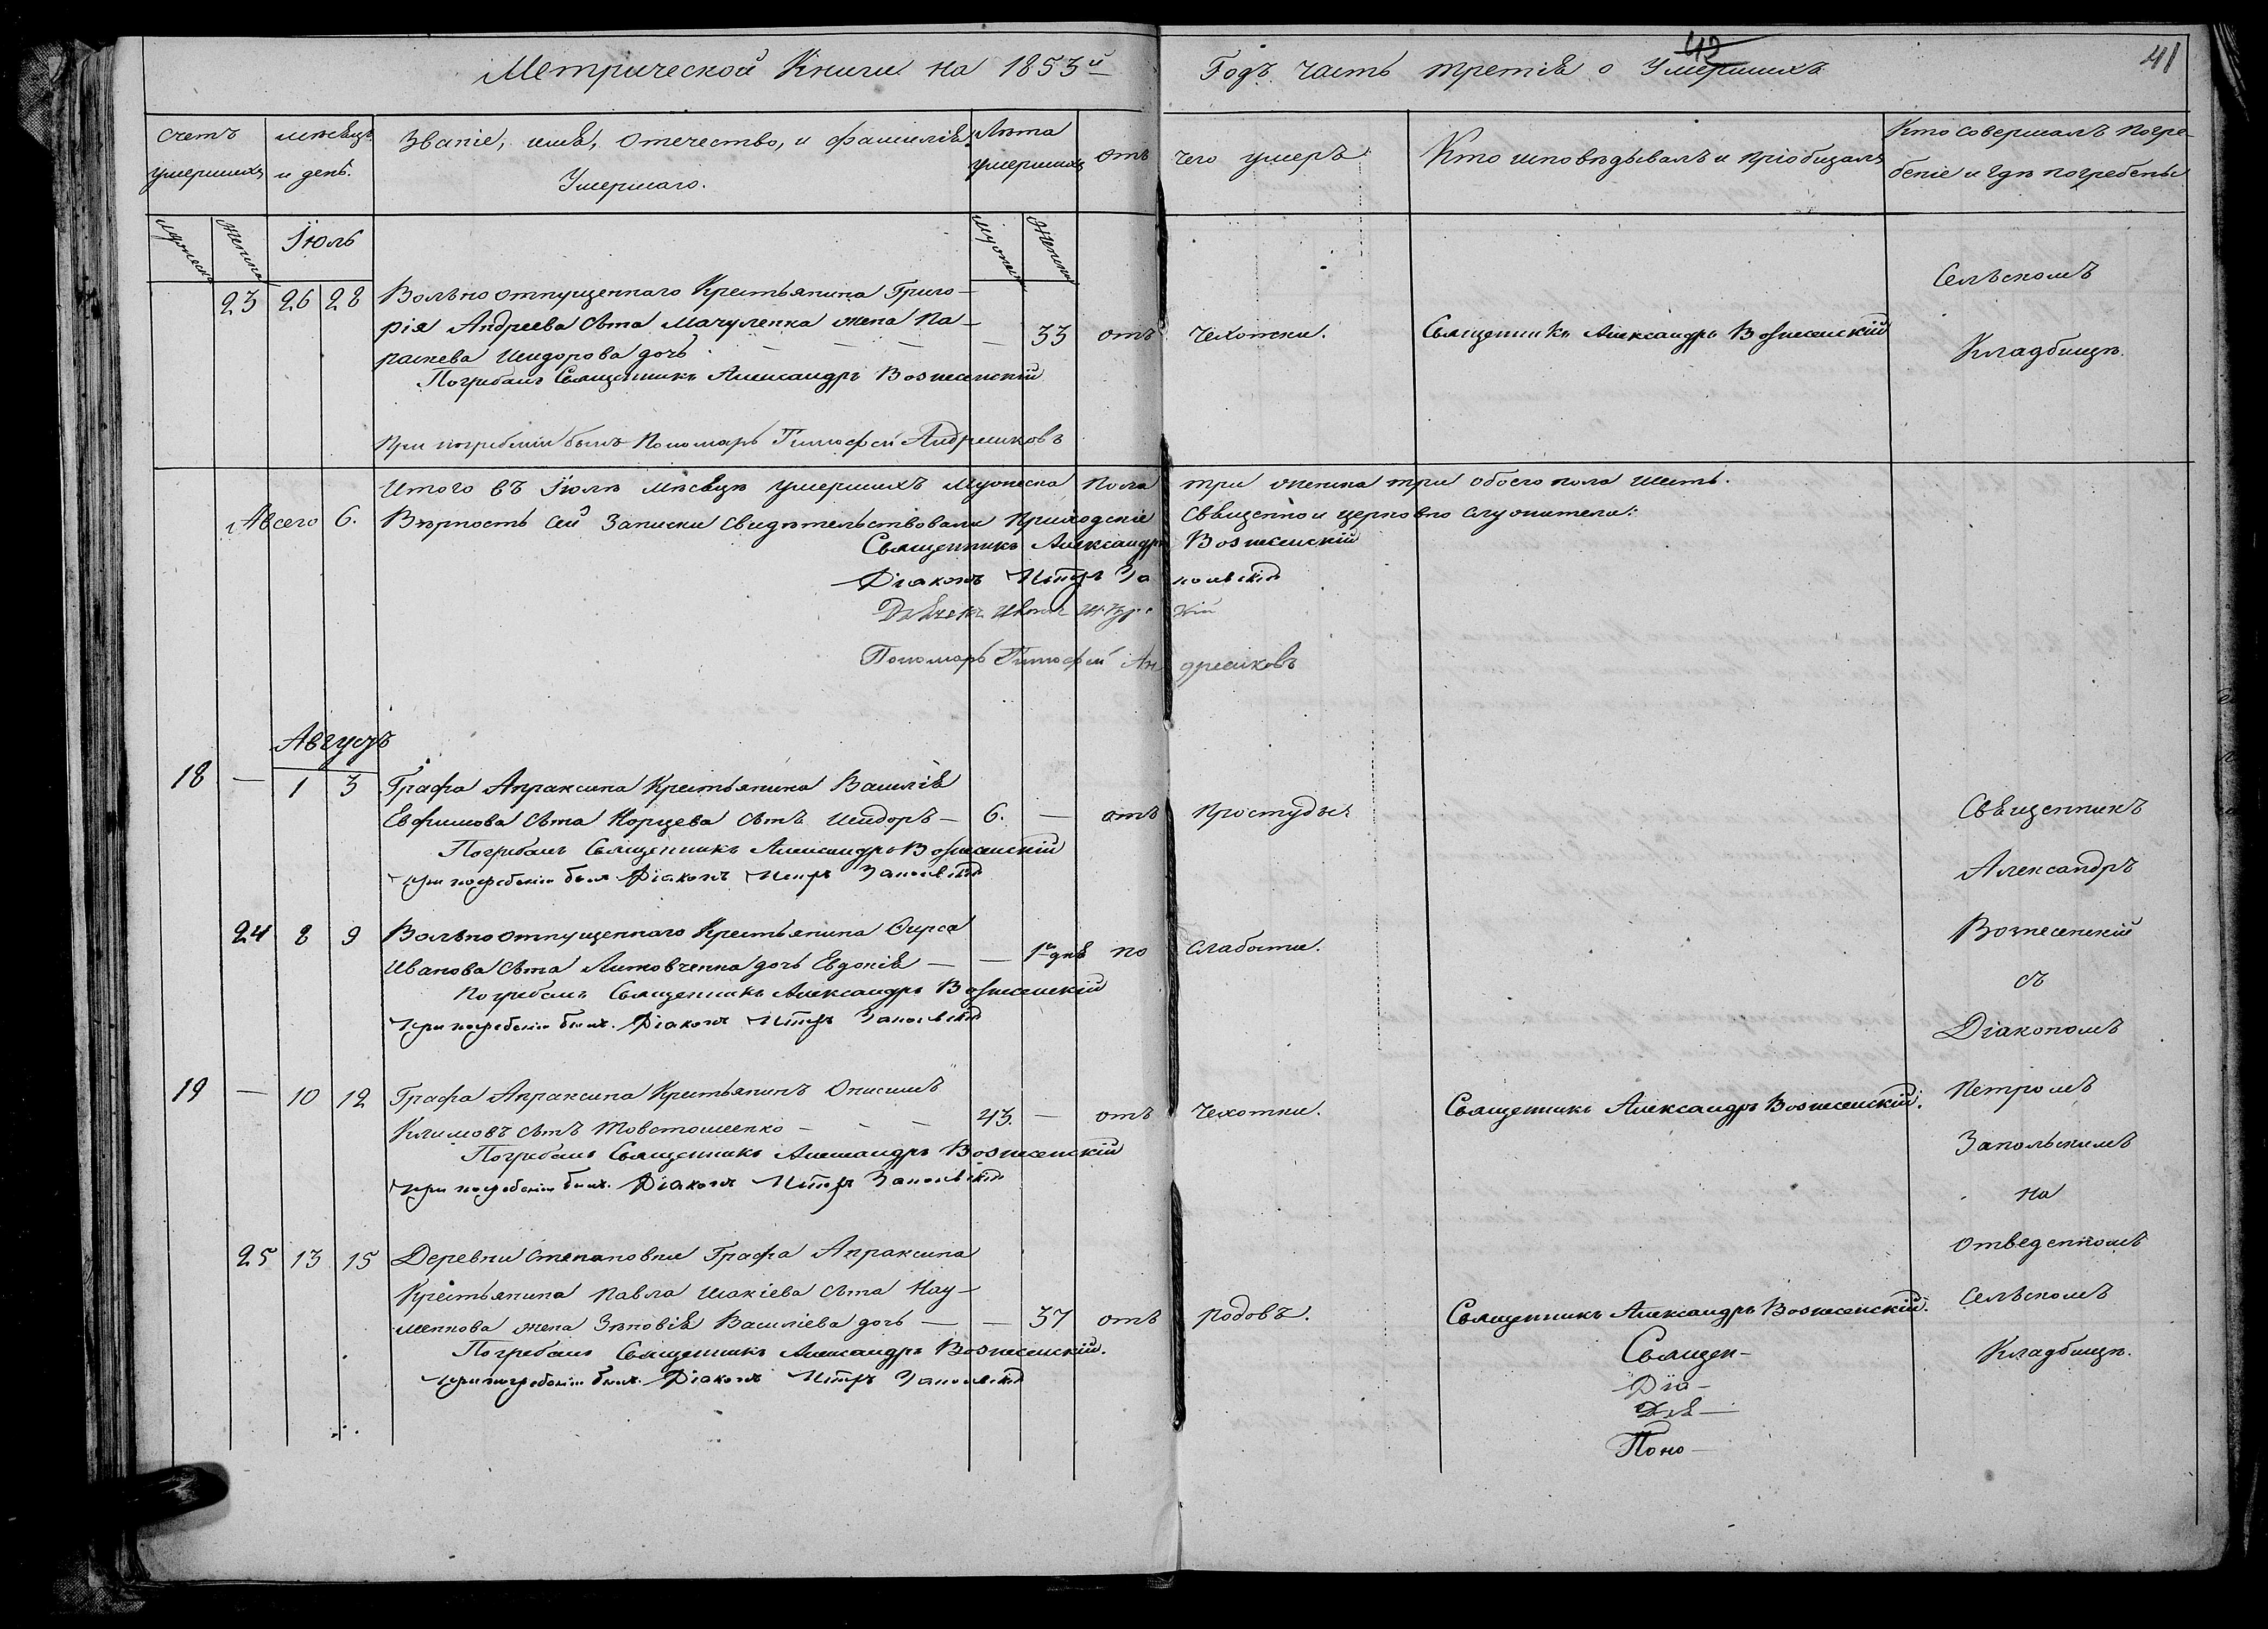 Метрической Книги на 1853й Годъ часть третія о Умершихъ
42
41
Счетъ умершихъ
мѣсяцъ и день.
Званіе, имя, отечество, и фамилія Умершаго.
Лѣта умершихъ
отъ чего умеръ
Кто исповѣдывалъ и пріобщалъ
Кто совершалъ погре-
беніе и гдѣ погребены
мужеска
женска
Іюль
мужеска
женска
23 26 28 Вольно отпущеннаго Крестьянина Григо-
рія Андреева сына Мачуленка жена Па-
раскева Исидорова дочь — 33 отъ чехотки. Священникъ Александръ Вознесенскій
Погребалъ Священникъ Александръ Вознесенскій
При погребеніи былъ Пономарь Тимофей Андрешковъ
Сельскомъ
Кладбищѣ.
Итого въ Іюлѣ мѣсяцѣ умершихъ мужеска пола три женска три обоего пола шесть.
А всего 6. Вѣрность сей Записки свидѣтельствовали Приходскіе священно и церковно служители:
Священникъ Александръ Вознесенскій
Діаконъ Петръ Запольскій
Дьячекъ Иванъ
Пономарь Тимофей Андрешковъ
Августъ
18 — 1 3 Графа Апраксина Крестьянина Василія
Евфимова сына Корцева сынъ Исидоръ — 6. — отъ простуды.
Погребалъ Священникъ Александръ Вознесенскій
при погребеніи былъ Діаконъ Петръ Запольскій
24 8 9 Вольно отпущеннаго Крестьянина Фирса
Иванова сына Литовченка дочь Евдокія — — 1го дня по слабости.
Погребалъ Священникъ Александръ Вознесенскій
при погребеніи былъ Діаконъ Петръ Запольскій
19 — 10 12 Графа Апраксина Крестьянинъ Онисимъ
Климовъ сынъ Товстошеенко — — — 43. — отъ чехотки. Священникъ Александръ Вознесенскій.
Погребалъ Священникъ Александръ Вознесенскій
при погребеніи былъ Діаконъ Петръ Запольскій
25 13 15 Деревни Степановки Графа Апраксина
Крестьянина Павла Исакіева сына Нау-
менкова жена Зѣновія Василіева дочь — — 37 отъ родовъ. Священникъ Александръ Вознесенскій.
Погребалъ Священникъ Александръ Вознесенскій.
при погребеніи былъ Діаконъ Петръ Запольскій
Священникъ
Александръ
Вознесенскій
съ
Діакономъ
Петромъ
Запольскимъ
на
отведенномъ
Сельскомъ
Кладбищѣ.
Священ-
Діа-
Дья-
Поно-